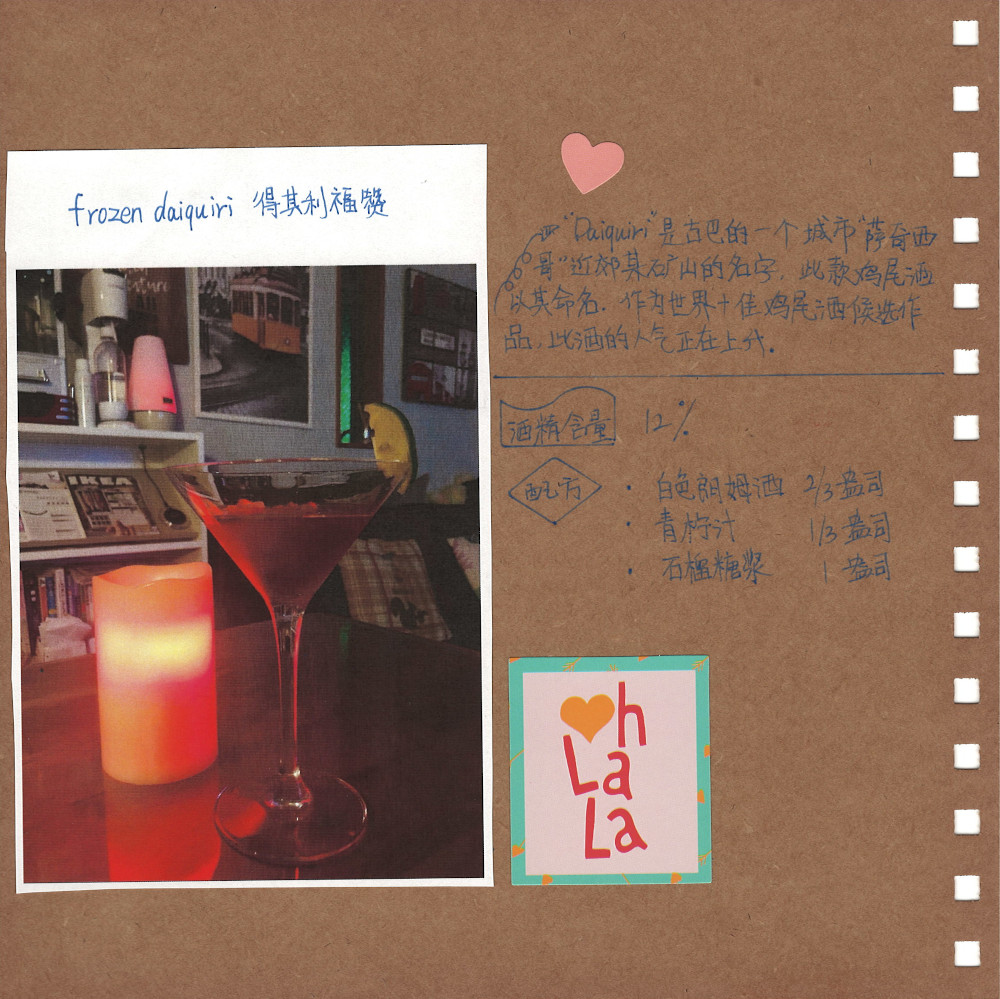 frozen daiquiri 得其利福
IKEA
"Daiquiri"是古巴的一个城市"萨奇西
哥"近郊某石矿山的名字，此款鸡尾酒
以其命名．作为世界十佳鸡尾酒候选作
品，此酒的人气正在上升．
酒精含量 12%
配方
· 白色朗姆酒 2/3盎司
· 青柠汁 1/3盎司
· 石榴糖浆 1盎司
Oh
La
La